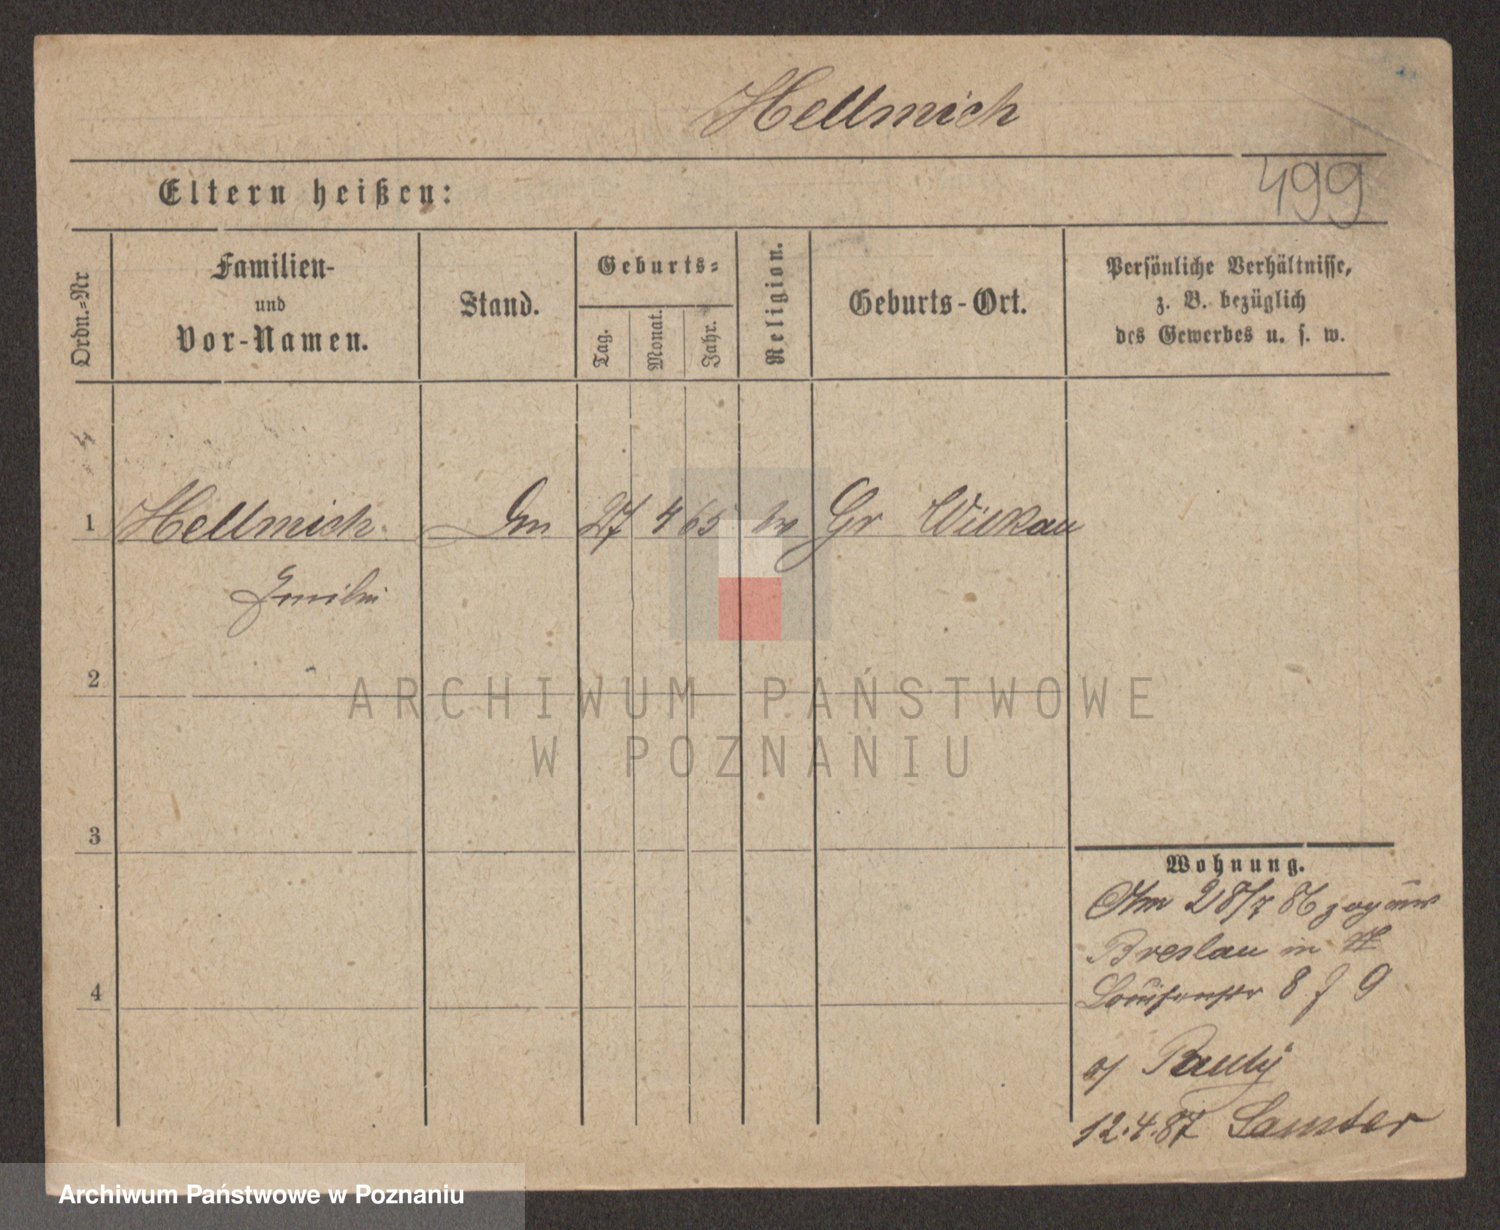 Hellmich
499
Eltern heißen:
Ordn.-Nr
Familien-
und
Vor-Namen.
Stand.
Geburts-
Tag.
Monat.
Jahr.
Religion.
Geburts-Ort.
Persönliche Verhältnisse,
z. B. bezüglich
des Gewerbes u. s. w.
1 Hellmich 27 4 65 Gr Wilkau
Emilie
2
3
4
Wohnung.
28/7 86
Breslau in
Louisenstr 8 9
Pauly
12.4.87 Samter
ARCHIWUM PAŃSTWOWE
W POZNANIU
Archiwum Państwowe w Poznaniu